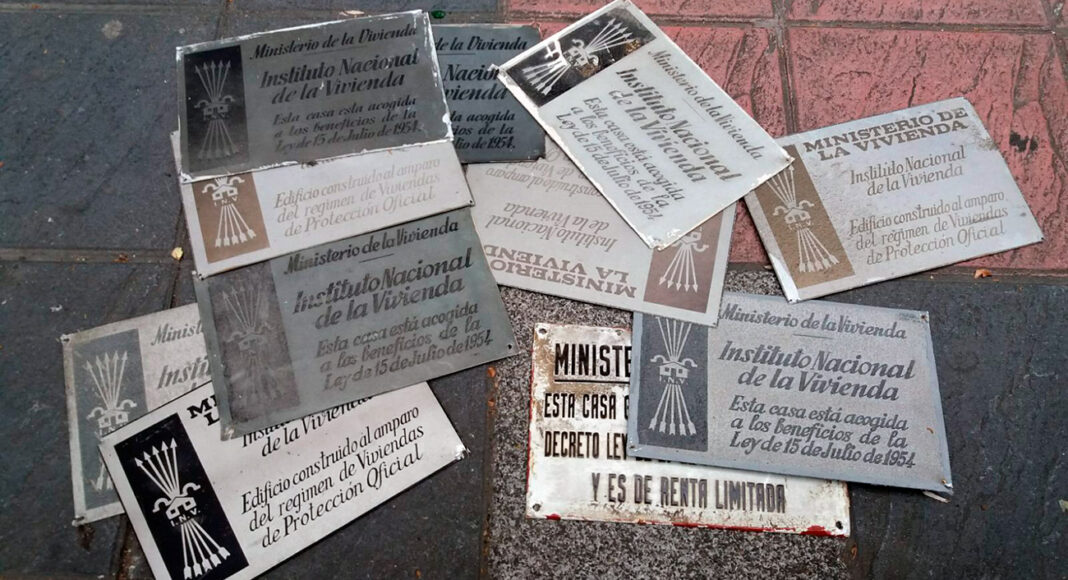 Ministerio de la Vivienda
Instituto Nacional
de la Vivienda
Esta casa esta acogida
a los beneficios de la
Ley de 15 de Julio de 1954.
de la Vivienda
Nacional
vienda
acogida
de la
lio de 1954.
Ministerio de la Vivienda
Instituto Nacional
de la Vivienda
Esta casa está acogida
a los beneficios de la
Ley de 15 de Julio de 1954
MINISTERIO DE
LA VIVIENDA
Instituto Nacional
de la Vivienda
Edificio construido al amparo
del régimen de Viviendas
de Protección Oficial
I.N.V.
Edificio construido al amparo
del régimen de Viviendas
de Protección Oficial
MINISTERIO
LA VIVIEND
Instituto Nacional
de la Vivienda
construido al amparo
de Vivi
Ministerio de la Vivienda
Instituto Nacional
de la Vivienda
Esta casa está acogida
a los beneficios de la
Ley de 15 de Julio de 1954
Ministerio
Instit
MI
L
Instituto
de la Vivienda
Edificio construido al amparo
del régimen de Viviendas
de Protección Oficial
I.N.V.
MINISTE
ESTA CASA
DECRETO LEY
Y ES DE RENTA LIMITADA
Ministerio de la Vivienda
Instituto Nacional
de la Vivienda
Esta casa está acogida
a los beneficios de la
Ley de 15 de Julio de 1954
I.N.V.